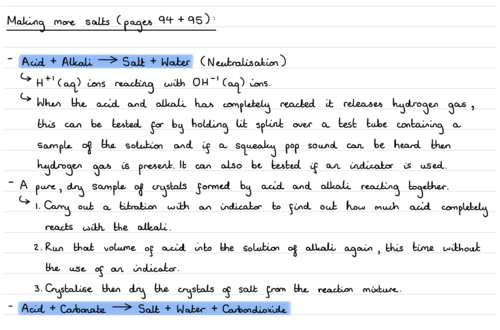 Making more salts (pages 94 + 95):
- Acid + Alkali → Salt + Water (Neutralisation)
↳ H⁺¹(aq) ions reacting with OH⁻¹(aq) ions.
↳ When the acid and alkali has completely reacted it releases hydrogen gas,
this can be tested for by holding lit splint over a test tube containing a
sample of the solution and if a squeaky pop sound can be heard then
hydrogen gas is present. It can also be tested if an indicator is used.
- A pure, dry sample of crystals formed by acid and alkali reacting together.
↳ 1. Carry out a titration with an indicator to find out how much acid completely
reacts with the alkali.
2. Run that volume of acid into the solution of alkali again, this time without
the use of an indicator.
3. Crystalise then dry the crystals of salt from the reaction mixture.
- Acid + Carbonate → Salt + Water + Carbondioxide